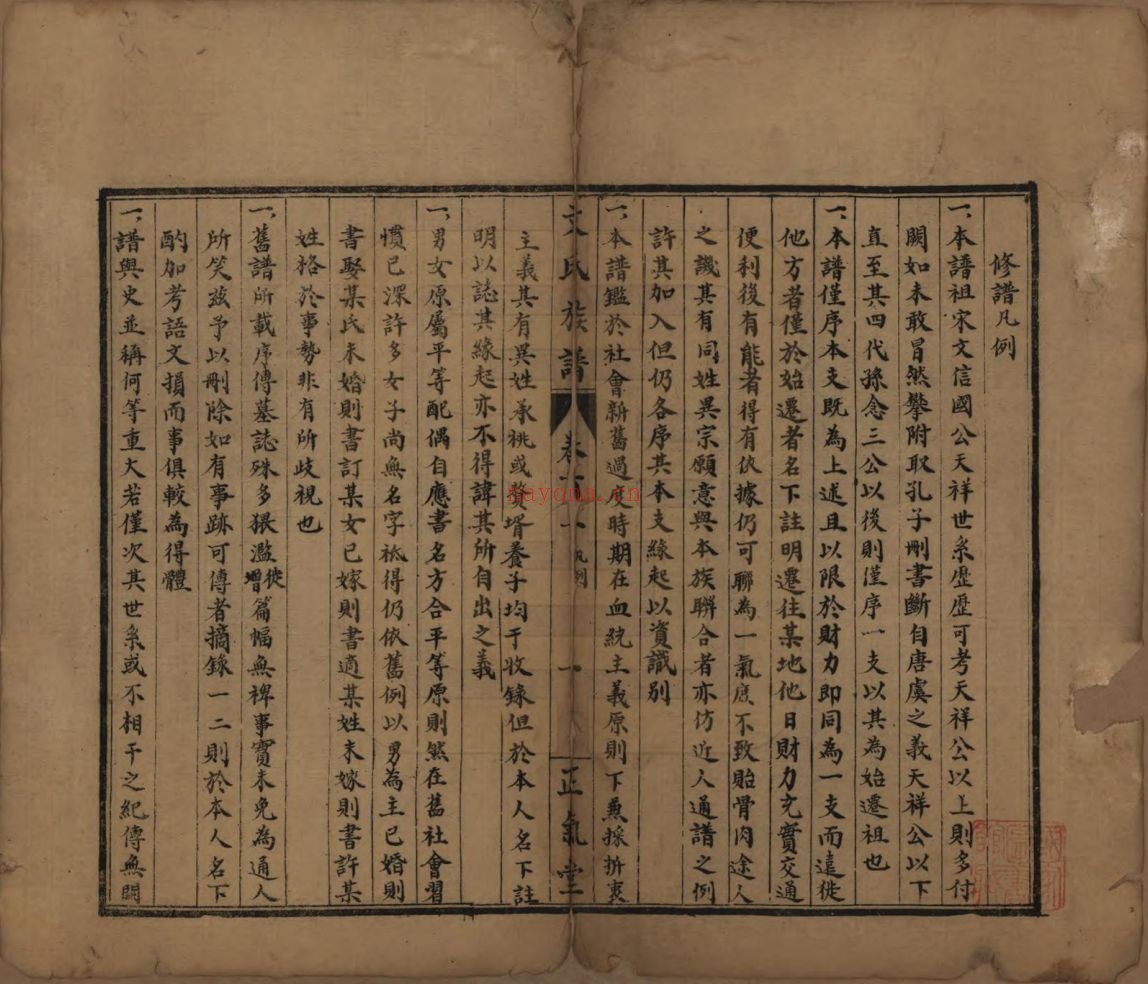 修譜凡例
一、本譜祖宋文信國公天祥世系歷歷可考天祥公以上則多付
闕如未敢冒然攀附取孔子刪書斷自唐虞之義天祥公以下
直至其四代孫念三公以後則僅序一支以其為始遷祖也
一、本譜僅序本支既為上述且以限於財力即同為一支而遠徙
他方者僅於始遷者名下註明遷往某地他日財力充實交通
便利後有能者得有依據仍可聯為一氣庶不致貽骨肉途人
之譏其有同姓異宗願意與本族聯合者亦仿近人通譜之例
許其加入但仍各序其本支緣起以資識別
一、本譜鑑於社會新舊過度時期在血統主義原則下兼採折衷
文氏族譜 卷首 凡例 一 正氣堂
主義其有異姓承祧或贅壻養子均予收錄但於本人名下註
明以誌其緣起亦不得諱其所自出之義
一、男女原屬平等配偶自應書名方合平等原則然在舊社會習
慣已深許多女子尚無名字祇得仍依舊例以男為主已婚則
書娶某氏未婚則書訂某女已嫁則書適某姓未嫁則書許某
姓格於事勢非有所歧視也
一、舊譜所載序傳墓誌殊多猥濫徒增篇幅無裨事實未免為通人
所笑茲予以刪除如有事跡可傳者摘錄一二則於本人名下
酌加考語文損而事俱較為得體
一、譜與史並稱何等重大若僅次其世系或不相干之紀傳無關